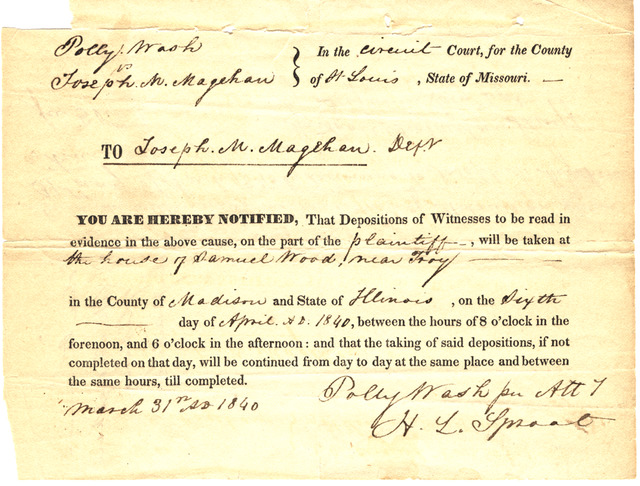 Polly Wash
vs
Joseph. M. Magehan
In the circuit Court, for the County
of St Louis, State of Missouri.
TO Joseph. M. Magehan. Deft
YOU ARE HEREBY NOTIFIED, That Depositions of Witnesses to be read in
evidence in the above cause, on the part of the plaintiff, will be taken at
the house of Samuel Wood, near Troy
in the County of Madison and State of Illinois, on the Sixth
day of April AD. 1840, between the hours of 8 o'clock in the
forenoon, and 6 o'clock in the afternoon: and that the taking of said depositions, if not
completed on that day, will be continued from day to day at the same place and between
the same hours, till completed.
March 31st AD 1840
Polly Wash per Atty
H. L. Sproat